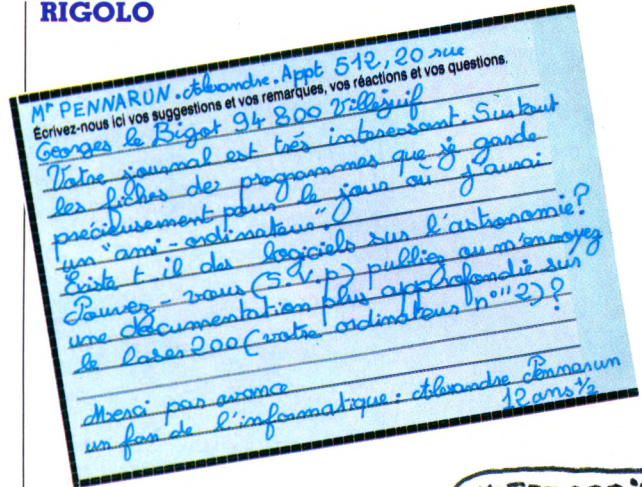 RIGOLO
Mr PENNARUN. Alexandre. Appt 512, 20 rue
Écrivez-nous ici vos suggestions et vos remarques, vos réactions et vos questions.
Georges le Bigot 94 800 Villejuif
Votre journal est très interessant. Surtout
les fiches des programmes que je garde
précieusement pour le jour où j'aurai
un "ami-ordinateur".
Existe t il des logiciels sur l'astronomie?
Pouvez-vous (S.V.p) publiez ou m'envoyez
une documentation plus approfondie sur
le laser 200 (votre ordinateur n° 2)?
Merci par avance
un fan de l'informatique: Alexandre Pennarun
12 ans 1/2